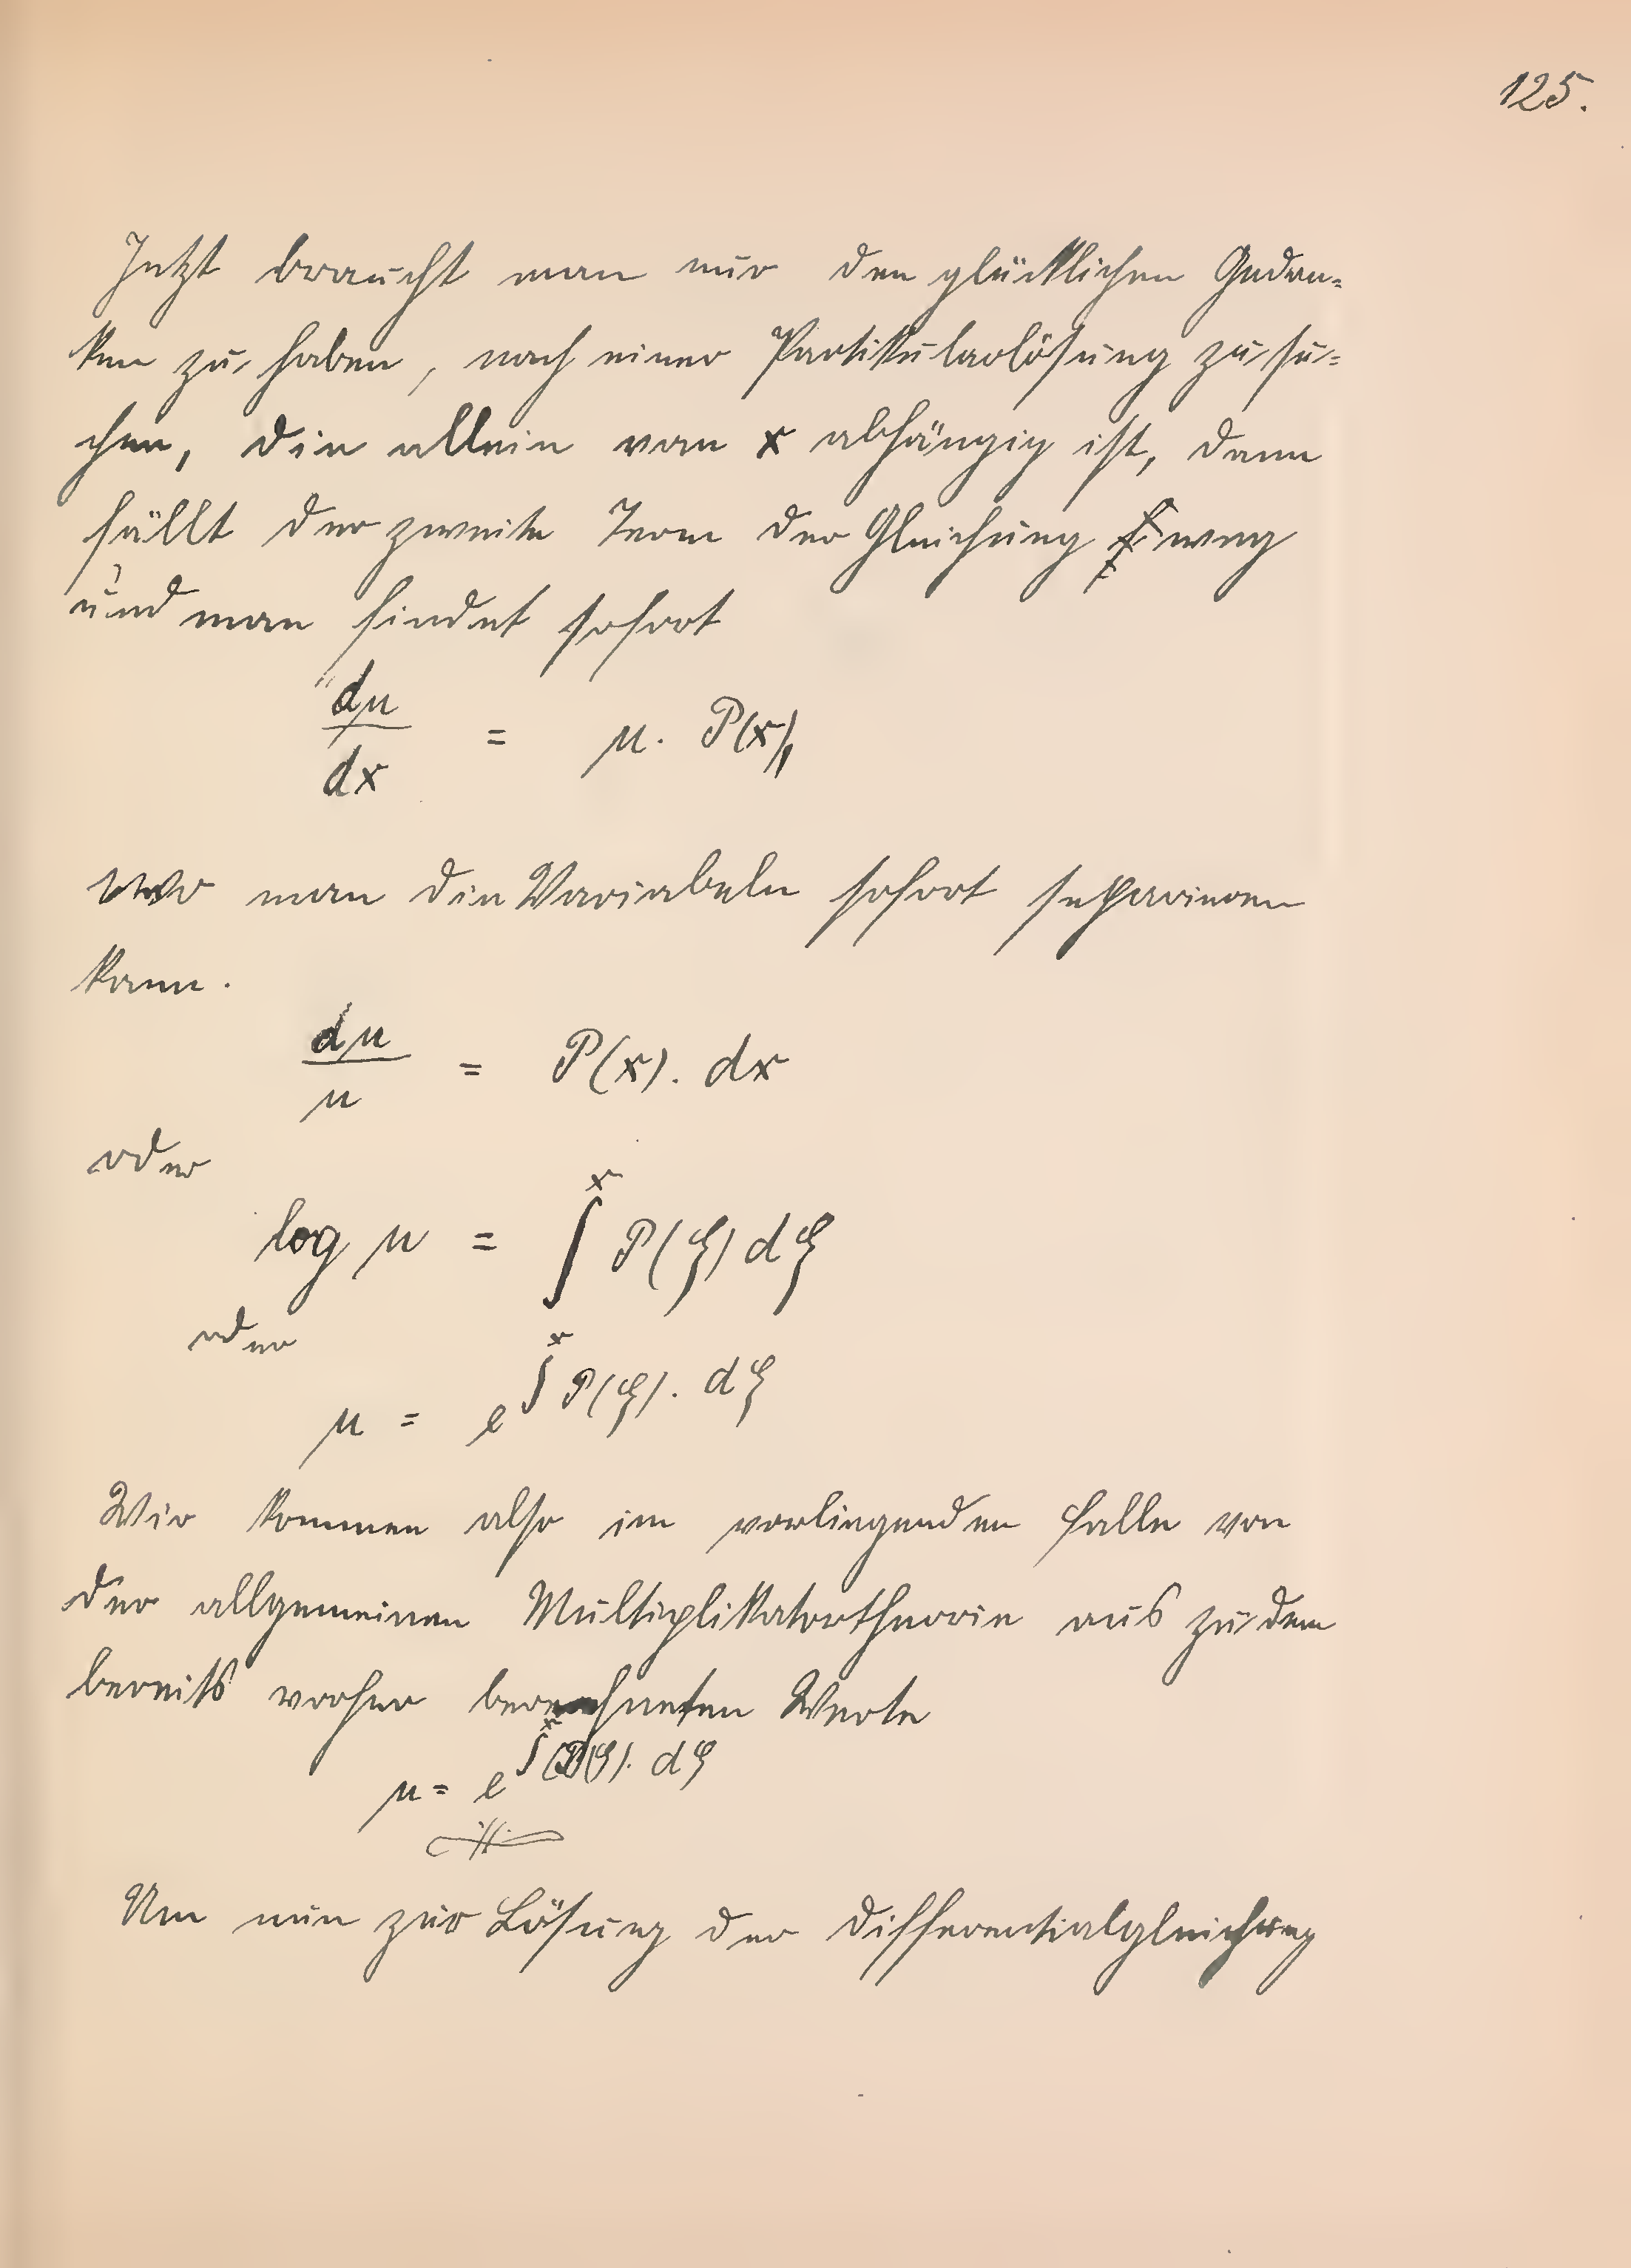 125.
Jetzt braucht man nur den glücklichen Gedan-
ken zu haben, nach einer Partikularlösung zu su-
chen, die allein von x abhängig ist, dann
fällt der zweite Term der Gleichung weg
und man findet sofort
dμ/dx = μ. P(x),
wo man die Variabeln sofort separieren
kann.
dμ/μ = P(x). dx
oder
log μ = ∫^x P(ξ) dξ
oder
μ = e^{∫^x P(ξ). dξ}
Wir kommen also im vorliegenden Falle von
der allgemeinen Multiplikatortheorie aus zu dem
bereits vorher berechneten Werte
μ = e^{∫^x P(ξ). dξ}
Um nun zur Lösung der Differentialgleichung